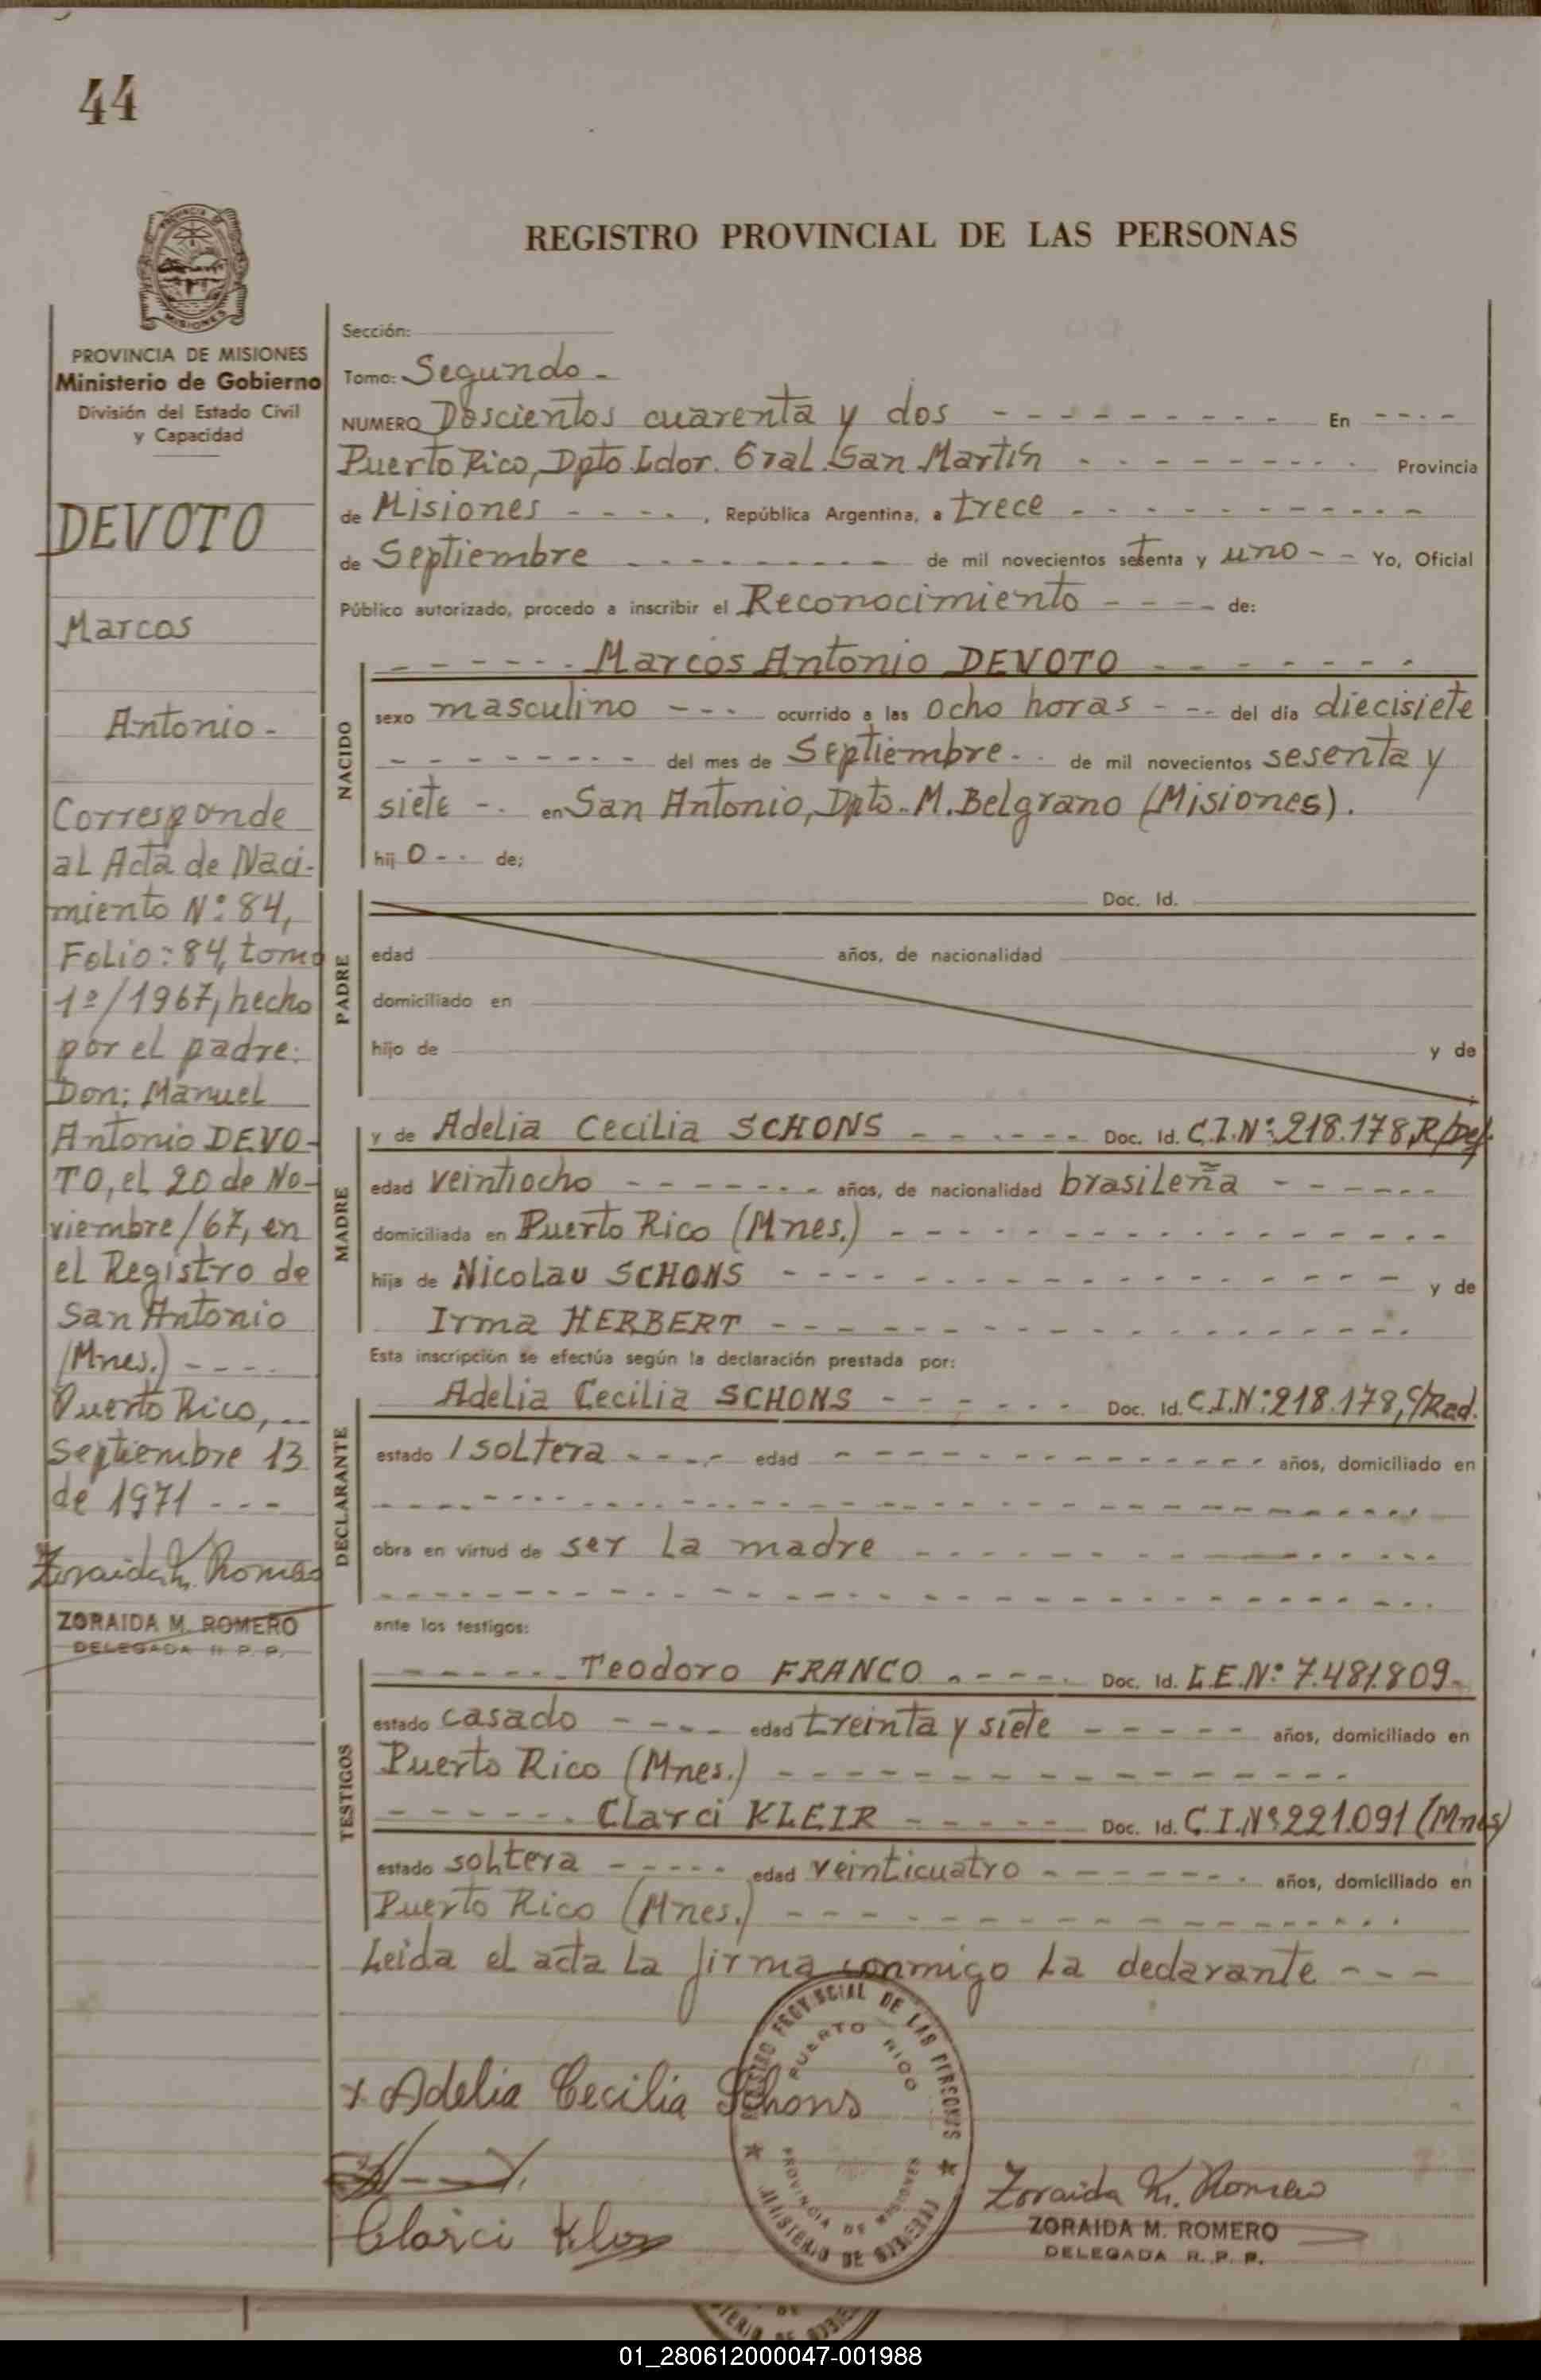 44
REGISTRO PROVINCIAL DE LAS PERSONAS
PROVINCIA DE MISIONES
Ministerio de Gobierno
División del Estado Civil
y Capacidad
DEVOTO
Marcos
Antonio -
Corresponde
al Acta de Naci-
miento Nº: 84,
Folio: 84, tomo
1º/1967, hecho
por el padre:
Don; Manuel
Antonio DEVO-
TO, el 20 de No-
viembre/67, en
el Registro de
San Antonio
(Mnes.) - - - -
Puerto Rico, - -
Septiembre 13
de 1971 - - -
Zoraida M. Romero
ZORAIDA M. ROMERO
DELEGADA R. P. P.
Sección:
Tomo: Segundo -
NUMERO Doscientos cuarenta y dos - - - - - - - - - - En - - - -
Puerto Rico, Dpto. Ldor. Gral. San Martín - - - - - - - - - Provincia
de Misiones - - - -, República Argentina, a trece - - - - - - - - - - - -
de Septiembre - - - - - - - - - de mil novecientos setenta y uno - - Yo, Oficial
Público autorizado, procedo a inscribir el Reconocimiento - - - - - de:
NACIDO
- - - - - - Marcos Antonio DEVOTO - - - - - - -
sexo masculino - - - ocurrido a las ocho horas - - - del día diecisiete
- - - - - - - - del mes de Septiembre - - de mil novecientos sesenta y
siete - - en San Antonio, Dpto. M. Belgrano (Misiones).
hij o - - de;
PADRE
Doc. Id.
edad años, de nacionalidad
domiciliado en
hijo de y de
MADRE
y de Adelia Cecilia SCHONS - - - - - - Doc. Id. C.I.Nº: 218.178, R/Def.
edad veintiocho - - - - - - - años, de nacionalidad brasileña - - - - - -
domiciliada en Puerto Rico (Mnes.) - - - - - - - - - - - - - - -
hija de Nicolau SCHONS - - - - - - - - - - - - - - y de
Irma HERBERT - - - - - - - - - - - - - - - -
Esta inscripción se efectúa según la declaración prestada por:
DECLARANTE
Adelia Cecilia SCHONS - - - - - - Doc. Id. C.I.Nº: 218.178, C/Rad.
estado / soltera - - - - - edad - - - - - - - - - - - - - - años, domiciliado en
- - - - - - - - - - - - - - - - - - - - - - - -
obra en virtud de ser la madre - - - - - - - - - - - -
- - - - - - - - - - - - - - - - - - - - - - - -
ante los testigos:
TESTIGOS
- - - - - - Teodoro FRANCO - - - - - Doc. Id. L.E.Nº: 7.481.809 -
estado casado - - - - - edad treinta y siete - - - - - años, domiciliado en
Puerto Rico (Mnes.) - - - - - - - - - - - - - -
- - - - - - Clarci KLEIR - - - - - Doc. Id. C.I.Nº 221.091 (Mnes)
estado soltera - - - - - edad veinticuatro - - - - - - - años, domiciliado en
Puerto Rico (Mnes.) - - - - - - - - - - - - - -
Leida el acta la firma conmigo la declarante - - -
x Adelia Cecilia Schons
REGISTRO PROVINCIAL DE LAS PERSONAS
PUERTO RICO
PROVINCIA DE MISIONES
MINISTERIO DE GOBIERNO
Clarci
Zoraida M. Romero
ZORAIDA M. ROMERO
DELEGADA R. P. P.
01_280612000047-001988